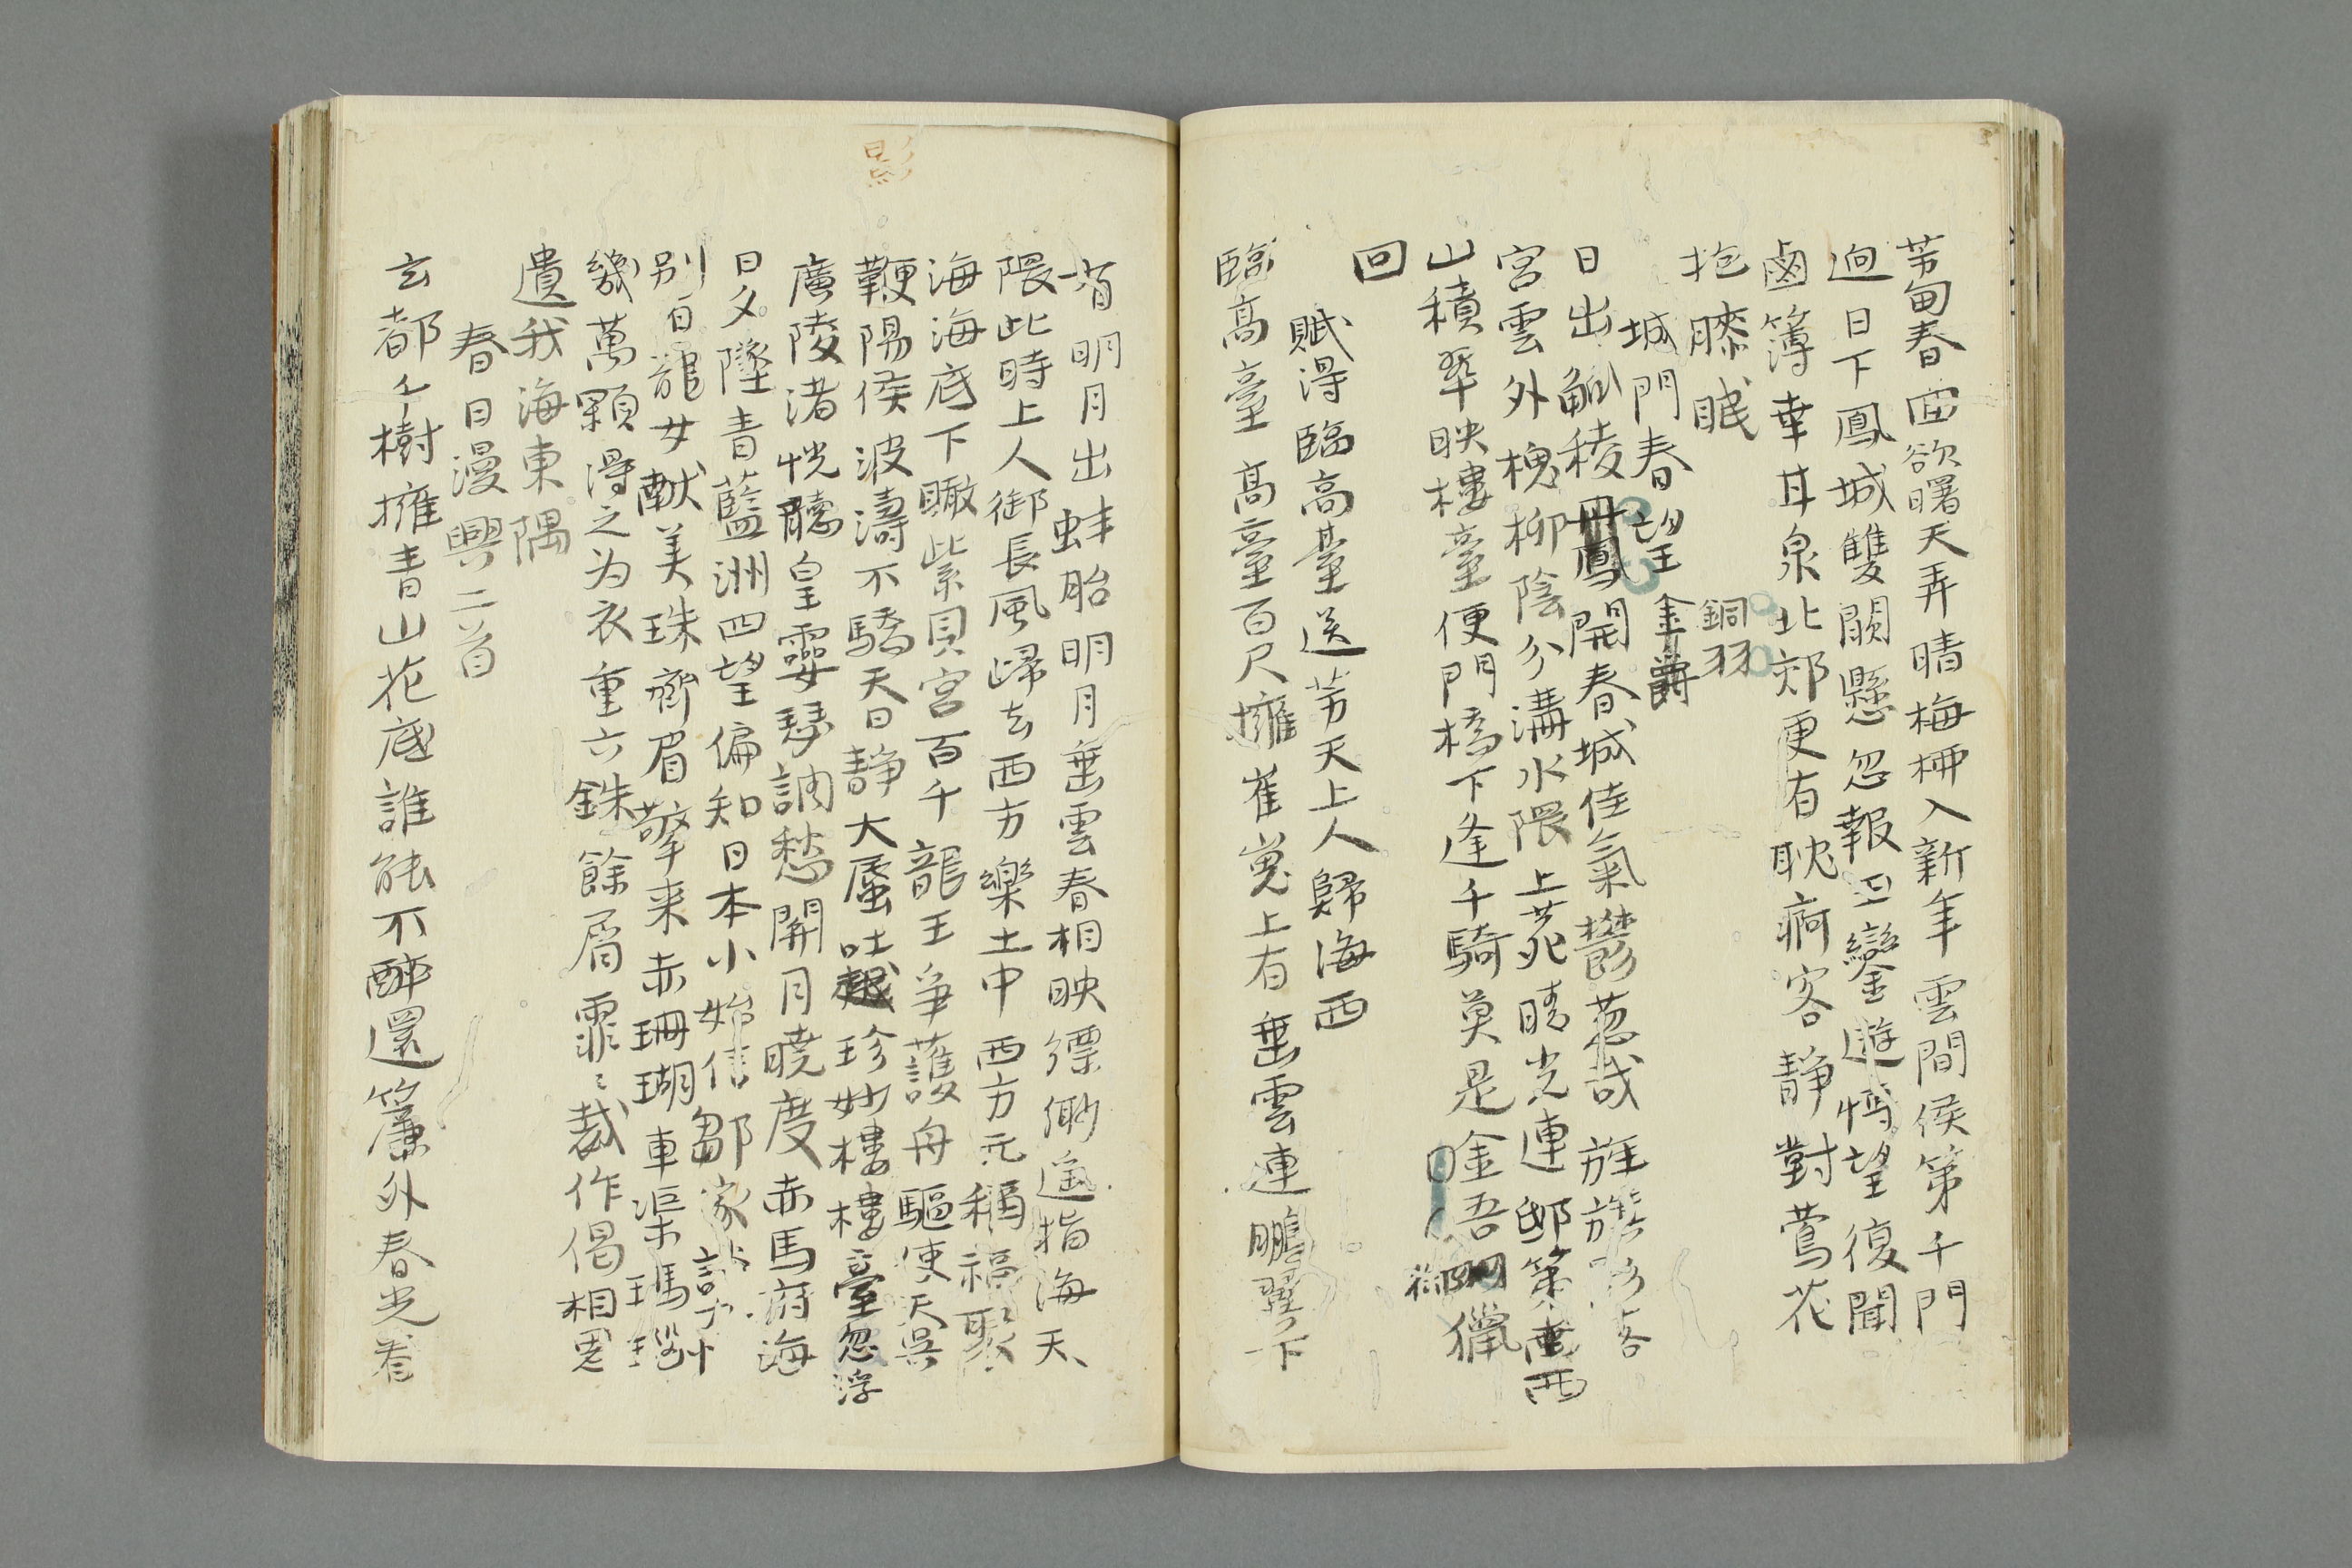 芳甸春回欲曙天弄晴梅柳入新年雲間侯第千門
迥日下鳳城雙闕懸忽報玉鑾遊
望復聞
鹵簿幸甘泉北郊更有耽痾客靜對鶯花
抱膝眠
銅羽
城門春望
金爵
日出觚稜丹鳳開春城佳氣鬱葱哉旌旗
宮雲外槐柳陰分溝水隈上苑晴光連邸第
西
山積翠映樓臺便門橋下逢千騎莫是金吾
獵
回
賦得臨高臺送芳天上人歸海西
臨高臺高臺百尺擁崔嵬上有垂雲連鵬翼下
影
有明月出蚌胎明月垂雲春相映縹緲遥指海天
隈此時上人御長風歸去西方樂土中西方元稱福聚
海海底下瞰紫貝宮百千龍王爭護舟驅使天吳
鞭陽侯波濤不驕天日靜大蜃吐
珍妙樓樓臺忽浮
廣陵渚恍聽皇靈瑟調愁開月曉度赤馬府海
日夕墜青藍洲四望偏知日本小始信鄒家談
別有龍女獻美珠齊眉擎来赤珊瑚車渠瑪瑙
幾萬顆得之为衣重六銖餘屑霏〻裁作偈相思
遺我海東隅
春日漫興二首
玄都千樹擁青山花底誰能不醉還簾外春光看